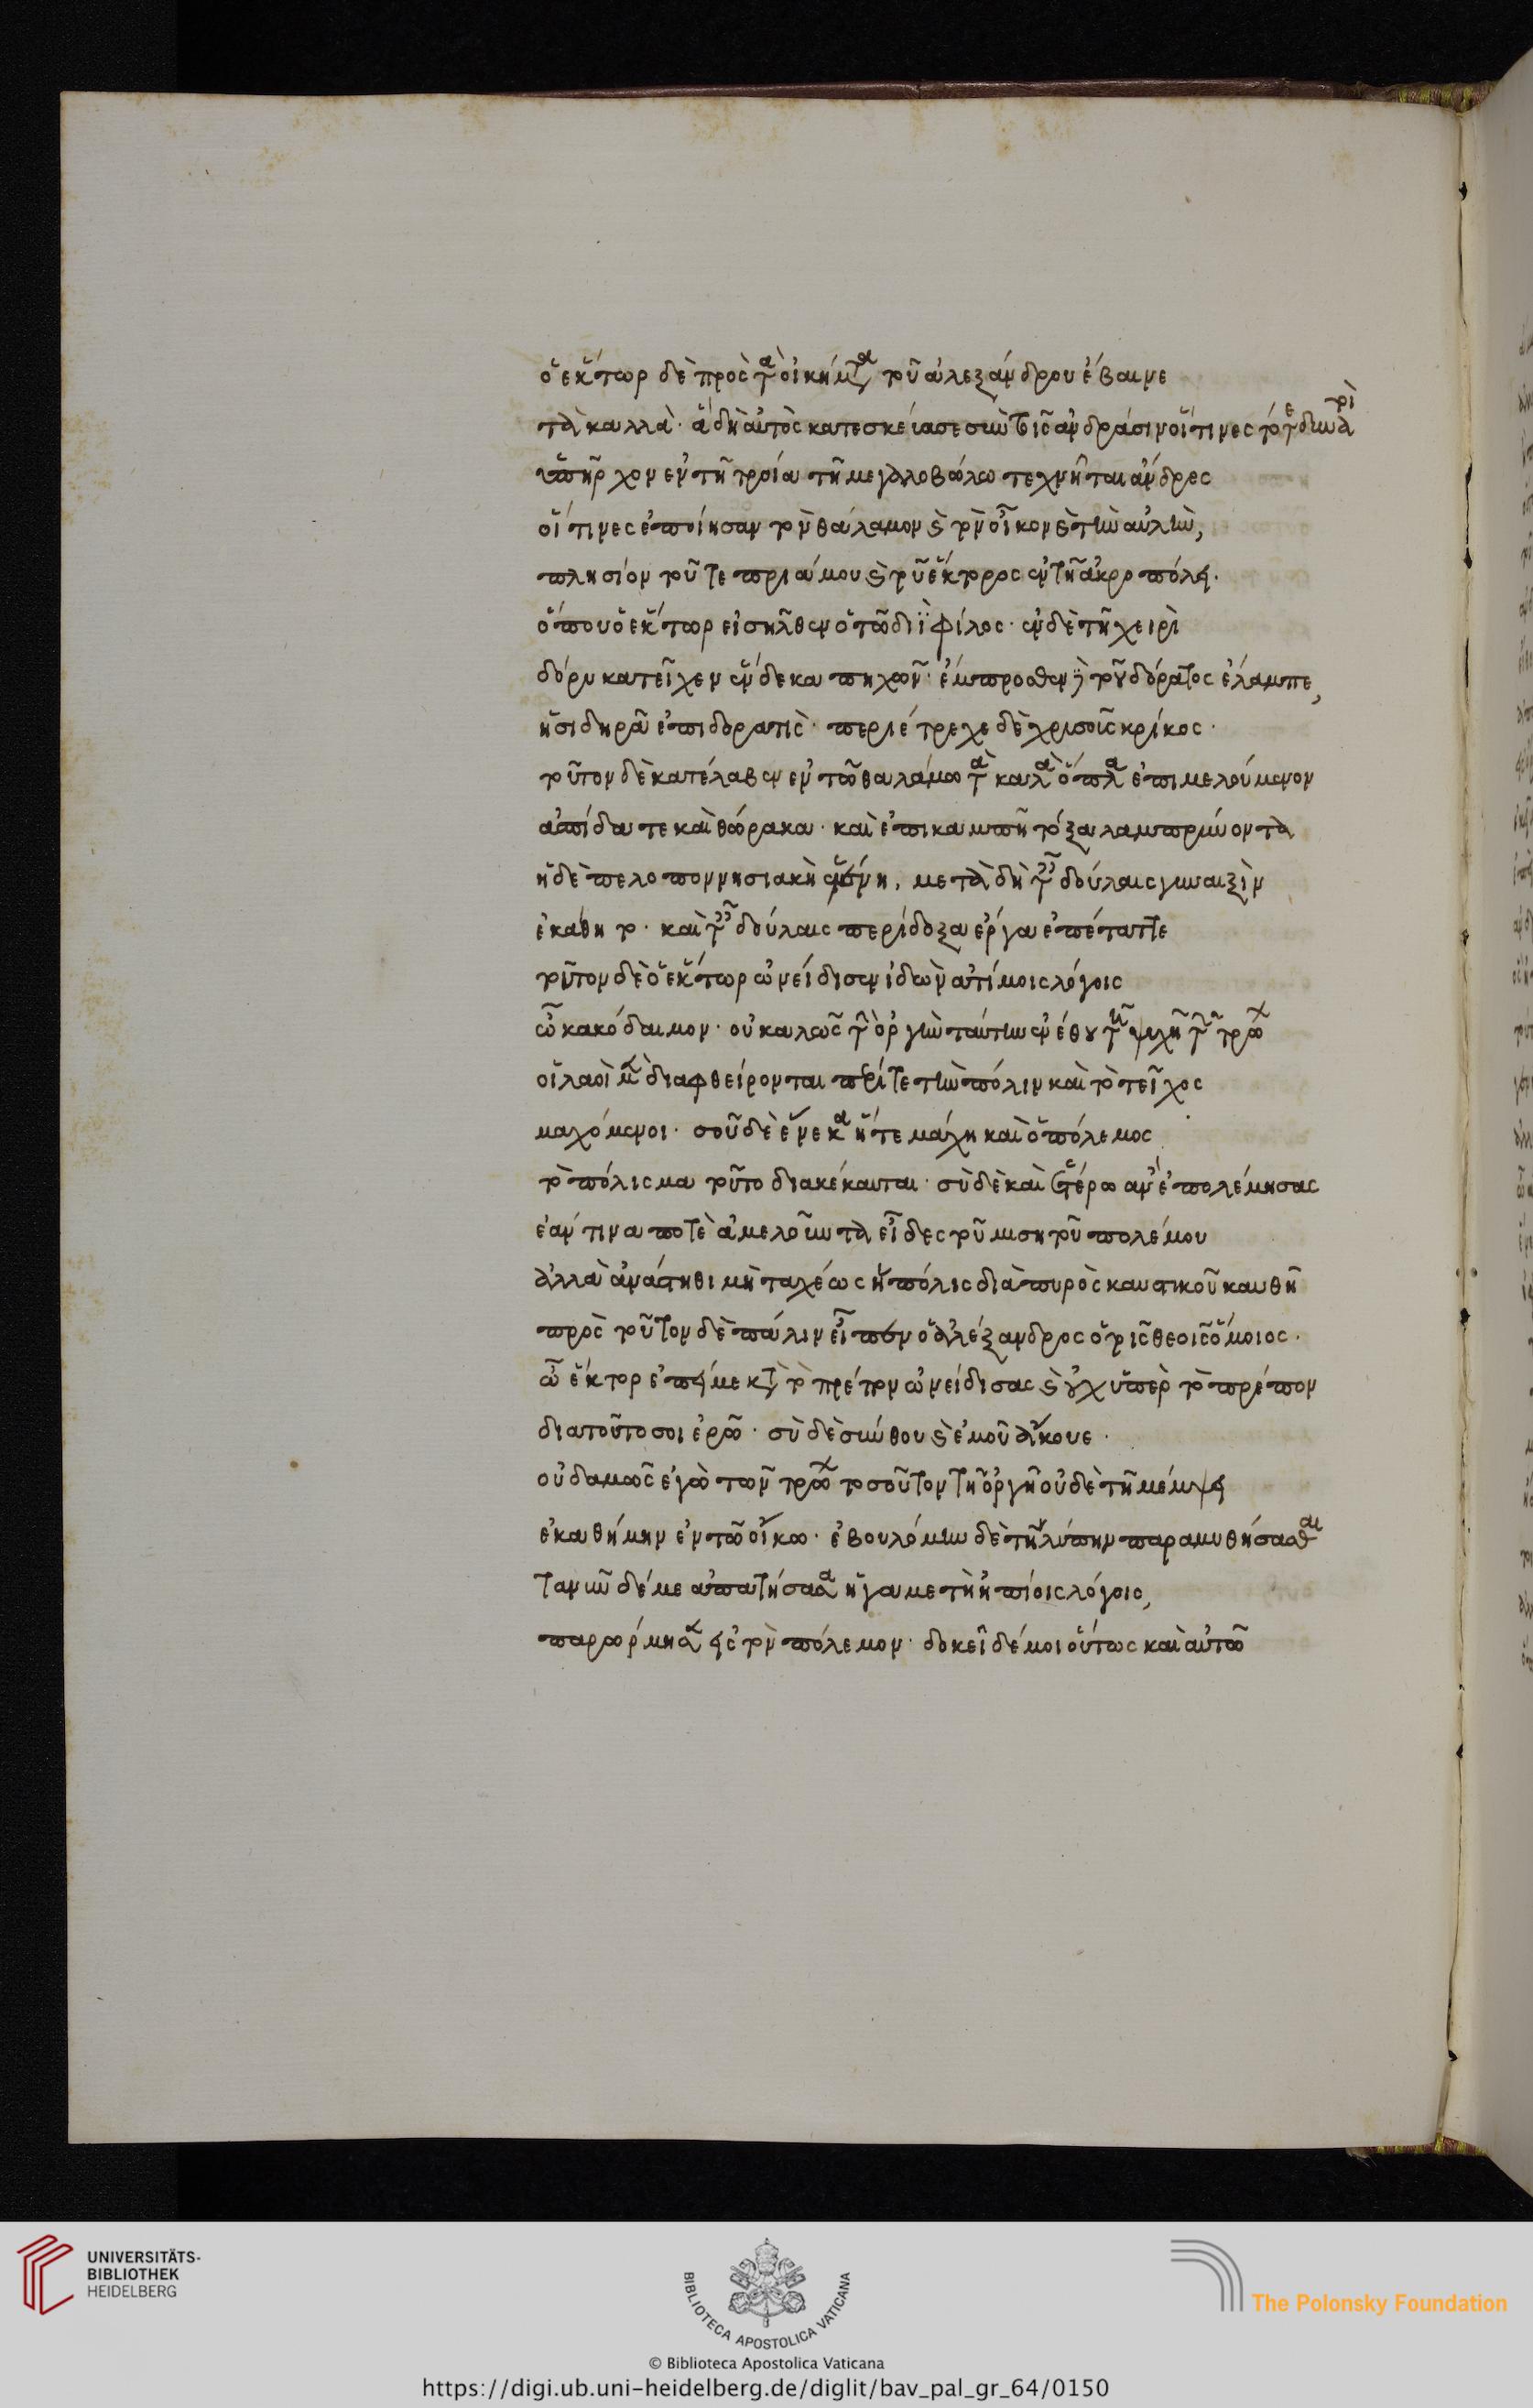 ὁ ἕκτωρ δὲ πρὸς τὰ οἰκήματα τοῦ ἀλεξάνδρου ἔβαινε
τὰ καλλὰ· ἃ δὴ αὐτὸς κατεσκεύασε σὺν τοῖς ἀνδράσιν οἵτινες τότε δυνατοὶ
ὑπῆρχον ἐν τῆ τροία τῆ μεγαλοβώλω τεχνῖται ἄνδρες
οἵτινες ἐποίησαν τὸν θάλαμον καὶ τὸν οἶκον καὶ τὴν αὐλὴν,
πλησίον τοῦ τε πριάμου καὶ τοῦ ἕκτορος ἐν τῆ ἀκροπόλει·
ὅπου ὁ ἕκτωρ εἰσῆλθεν ὁ τῶ διῒ φίλος· ἐν δὲ τῆ χειρὶ
δόρυ κατεῖχεν ἕνδεκα πηχῶν· ἔμπροσθεν δὲ τοῦ δόρατος ἔλαμπε,
ἡ σιδηρᾶ ἐπιδορατὶς· περιέτρεχε δὲ χρυσοῖς κρίκος·
τοῦτον δὲ κατέλαβεν ἐν τῶ θαλάμω τὰ καλὰ ὅπλα ἐπιμελούμενον
ἀσπίδα τε καὶ θώρακα· καὶ ἐπικαμπῆ τόξα λαμπρύνοντα
ἡ δὲ πελοποννησιακὴ ἑλένη, μετὰ δὴ τῶν δούλαις γυναιξὶν
ἐκάθητο· καὶ ταῖς δούλαις περίδοξα ἔργα ἐπέταττε
τοῦτον δὲ ὁ ἕκτωρ ὠνείδισεν ἰδὼν ἀτίμοις λόγοις
ὦ κακόδαιμον· οὐ καλῶς τὴν ὀργὴν ταύτην ἐνέθου τῆ ψυχῆ τῶν τρώων
οἱ λαοὶ μὲν διαφθείρονται περί τε τὴν πόλιν καὶ τὸ τεῖχος
μαχόμενοι· σοῦ δὲ ἕνεκα ἥ τε μάχη καὶ ὁ πόλεμος
τὸ πόλισμα τοῦτο διακέκαυται· σὺ δὲ καὶ ἑτέρω ἂν ἐπολέμησας
ἐάν τινα ποτὲ ἀμελοῦντα εἶδες τοῦ μισητοῦ πολέμου
ἀλλὰ ἀνάστηθι μὴ ταχέως ἡ πόλις διὰ πυρὸς καυστικοῦ καυθῆ
πρὸς τοῦτον δὲ πάλιν εἶπεν ὁ ἀλέξανδρος ὁ τοῖς θεοῖς ὅμοιος·
ὦ ἕκτορ ἐπεί με κατὰ τὸ πρέπον ὠνείδισας καὶ οὐχ ὑπὲρ τὸ πρέπον
διατοῦτο σοι ἐρῶ· σὺ δὲ σύνθου καὶ ἐμοῦ ἄκουε·
οὐδαμῶς ἐγὼ τῶν τρώων τοσοῦτον τῆ ὀργῆ οὐδὲ τῆ μέμψει
ἐκαθήμην ἐν τῶ οἴκω· ἐβουλόμην δὲ τὴν λύπην παραμυθήσασθαι
τανῦν δέ με ἀπατήσασα ἡ γαμετὴ ἠπίοις λόγοις,
παρώρμησεν εἰς τὸν πόλεμον· δοκεῖ δέ μοι οὕτως καὶ αὐτῶ
UNIVERSITÄTS-
BIBLIOTHEK
HEIDELBERG
BIBLIOTECA APOSTOLICA VATICANA
The Polonsky Foundation
© Biblioteca Apostolica Vaticana
https://digi.ub.uni-heidelberg.de/diglit/bav_pal_gr_64/0150